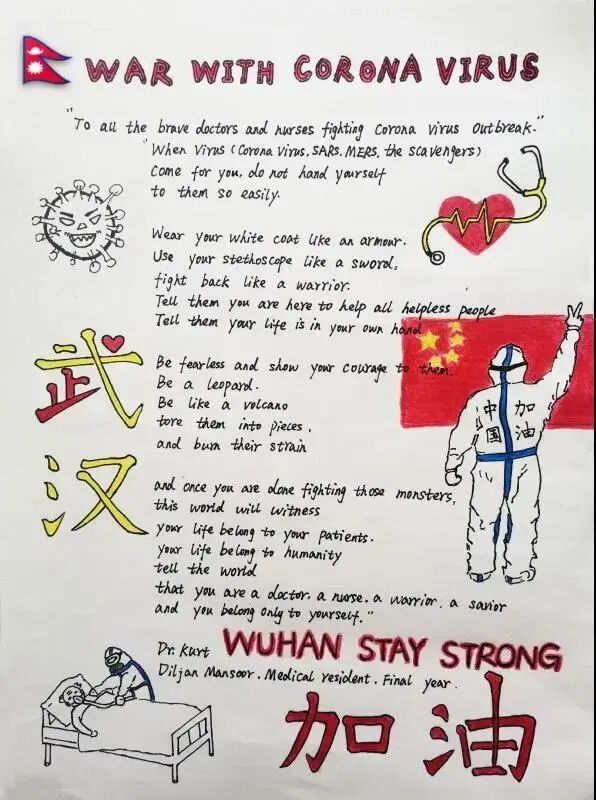 WAR WITH CORONA VIRUS
"To all the brave doctors and nurses fighting Corona Virus Outbreak."
"When Virus (Corona Virus, SARS, MERS, the scavengers)
Come for you, do not hand yourself
to them so easily.
Wear your white coat like an armour.
Use your stethoscope like a sword,
fight back like a warrior.
Tell them you are here to help all helpless people
Tell them your life is in your own hand
武
汉
Be fearless and show your courage to them.
Be a leopard.
Be like a volcano
tore them into pieces,
and burn their strain
中国
加油
and once you are done fighting those monsters,
this world will witness
your life belong to your patients.
your life belong to humanity
tell the world
that you are a doctor, a nurse, a warrior, a savior
and you belong only to yourself."
Dr. Kurt
WUHAN STAY STRONG
Diljan Mansoor. Medical resident. Final year.
加油